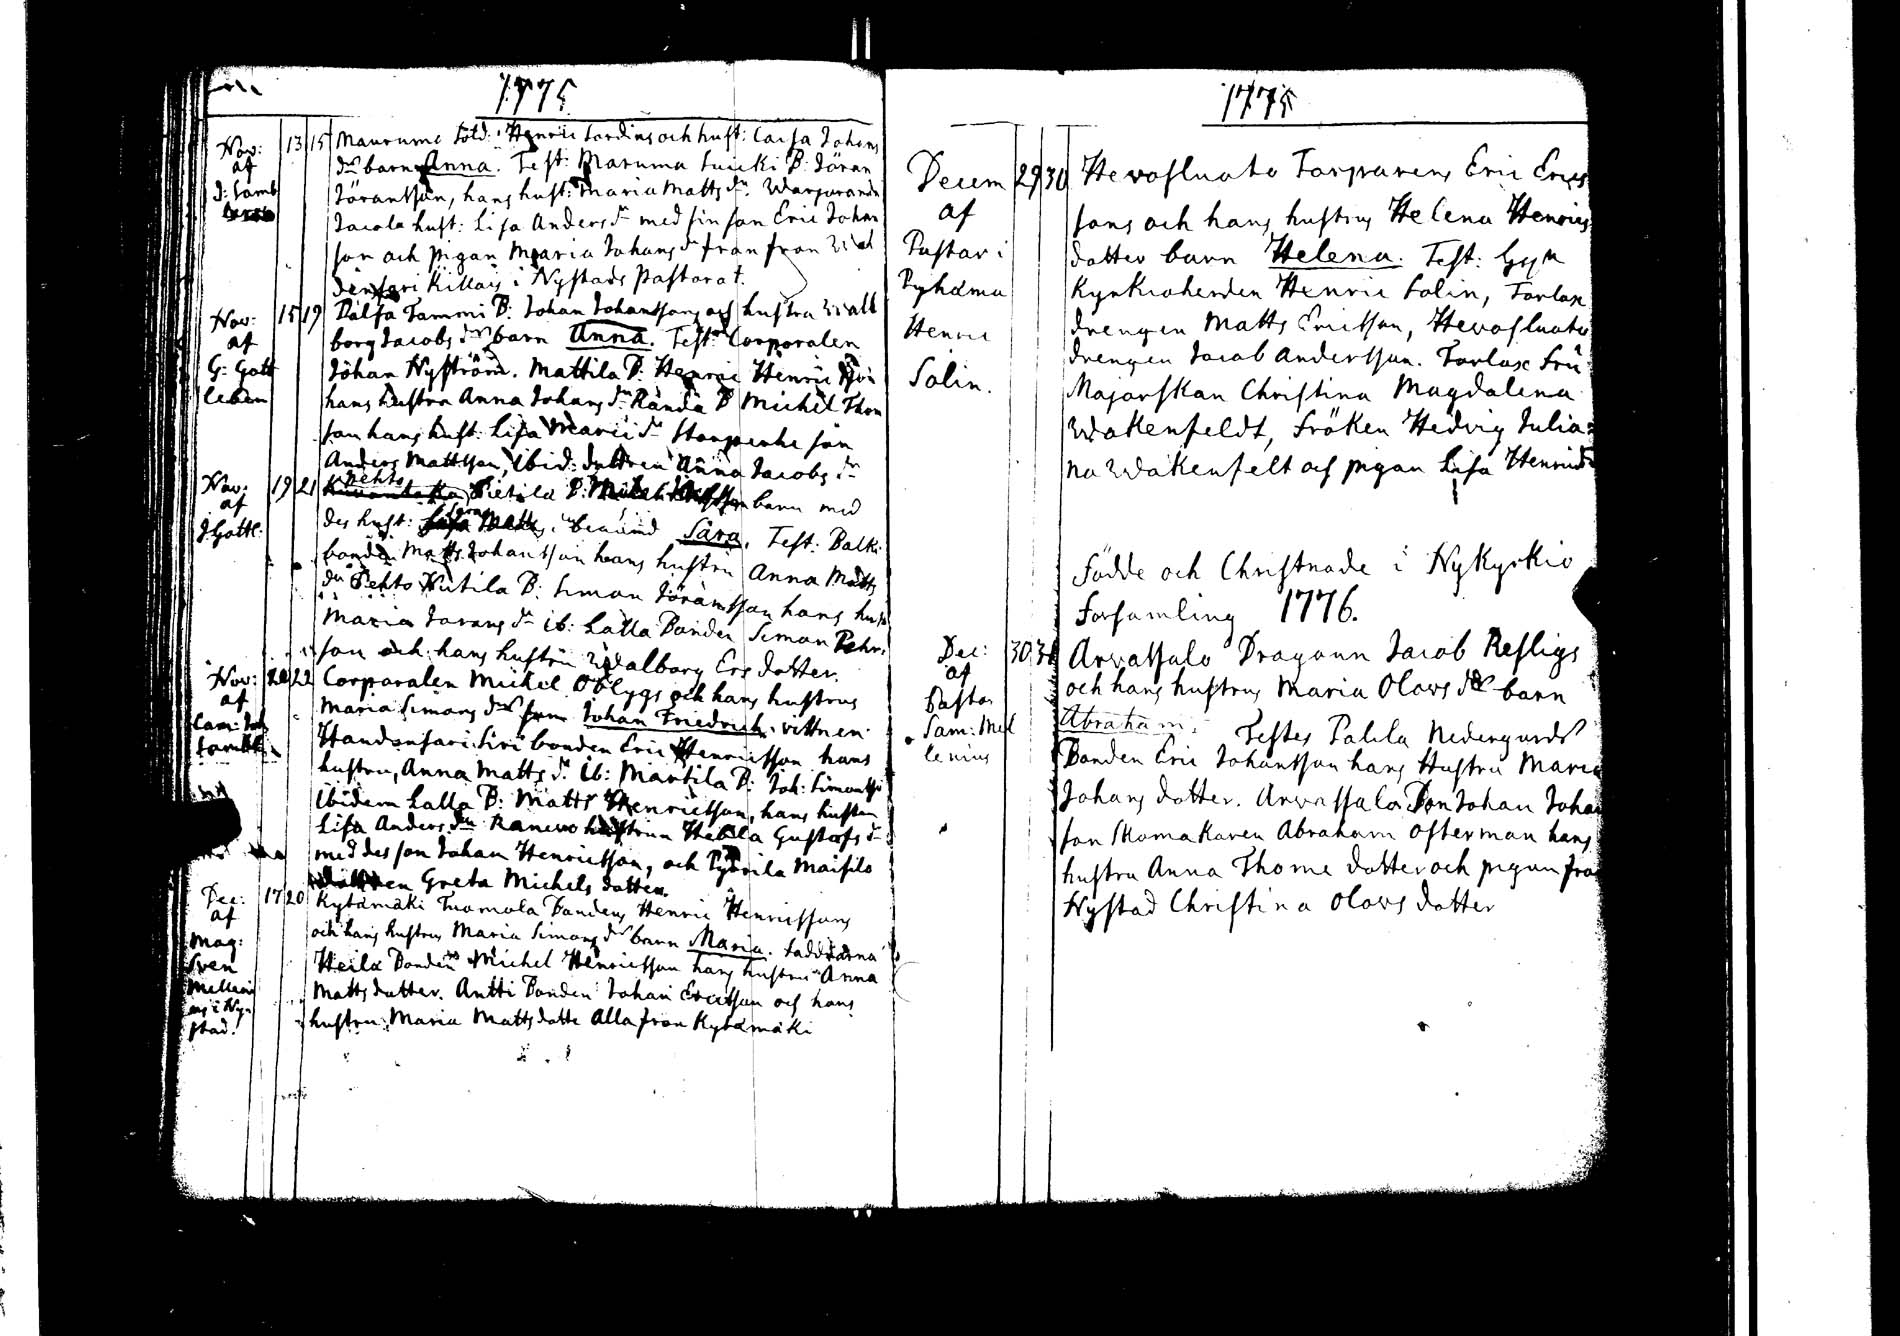 1775
Nov: 13 15 Mauruma Sold: Henric Sardins och hust: Caisa Johans
af dr barn Anna. Test: Maruma Suicki B: Jöran
J: Lamb Jöransson, hans hust: Maria Matts dr
Jacola hust: Lisa Anders dr med sin son Eric Johan
son och pigan Maria Johans dr från från
i Nystads Pastorat.
Nov: 15 19 Tammi B: Johan Johanssons och hustru Wall
af borg Jacobs dr barn Anna. Test: Corporalen
G: Gott Johan Nyström. Mattila B: Henric Henricsson
leben hans hustru Anna Johans dr Rända B Michel Thom
son hans hust: Lisa dr
Anders Mattsson, ibid: dottren Anna Jacobs dr
Nov: 19 21 Pehto Pietilä B: barn med
af des hust: benämd Sara. Test: Balki
J Gottl: bonden Matts Johansson hans hustru Anna Matts
dr Pehto Nutila B: Simon Jöransson hans hustr
Maria Jorans dr ib: Lalla Bonden Simon Pehr
son och hans hustru Walborg Ers dotter.
Nov: 20 22 Corporalen Mickel Oblygs och hans hustrus
af Maria Simons dr son Johan Friedrich. vittnen
Cam: Joh Bonden Eric Henricsson hans
hustru, Anna Matts dr ib: Martila B: Joh: Simonss
Ibidem Lalla B: Matts Henricsson, hans hustru
Lisa Anders dr hustrun Hebla Gustafs dr
med des son Johan Henricsson, och
dottren Greta Michels dotter.
Dec: 17 20 Kytämäki Tuomola Bondens Henric Henricssons
af och hans hustrus Maria Simons dr barn Maria. Faddrarna
Mag: Heilä Bonden Michel Henricsson hans hustru Anna
Sven Matts dotter. Antti Bonden Johan Ericsson och hans
Melleni hustru Maria Matts dotte alla från Kytämäki
us i Ny-
stad.
1775
Decem 29 30 Hevosluoto Torparens Eric Erics
af sons och hans hustrus Helena Henrics
Pastor i dotter barn Helena. Test:
Pyhäma Kyrkioherden Henric Solin, Torlax
Henric drengen Matts Ericsson, Hevosluoto
Solin. drengen Jacob Andersson. Torlax Fru
Majorskan Christina Magdalena
Wakenfeldt, Fröken Hedvig Julia=
na Wakenfelt och pigan Lisa Henricsdr
Födde och Christnade i Nykyrkio
Forsamling 1776.
Dec: 30 31 Arvassalo Dragoun Jacob Resligs
af och hans hustrus Maria Olovs dr barn
Pastor Abraham. Testes Palila Nedergårds
Sam: Mel Bonden Eric Johansson hans Hustru Maria
lenius Johans dotter. Arvassalo Bon Johan Johan
son Skomakaren Abraham Osterman hans
hustru Anna Thome dotter och pigan från
Nystad Christina Olovs dotter